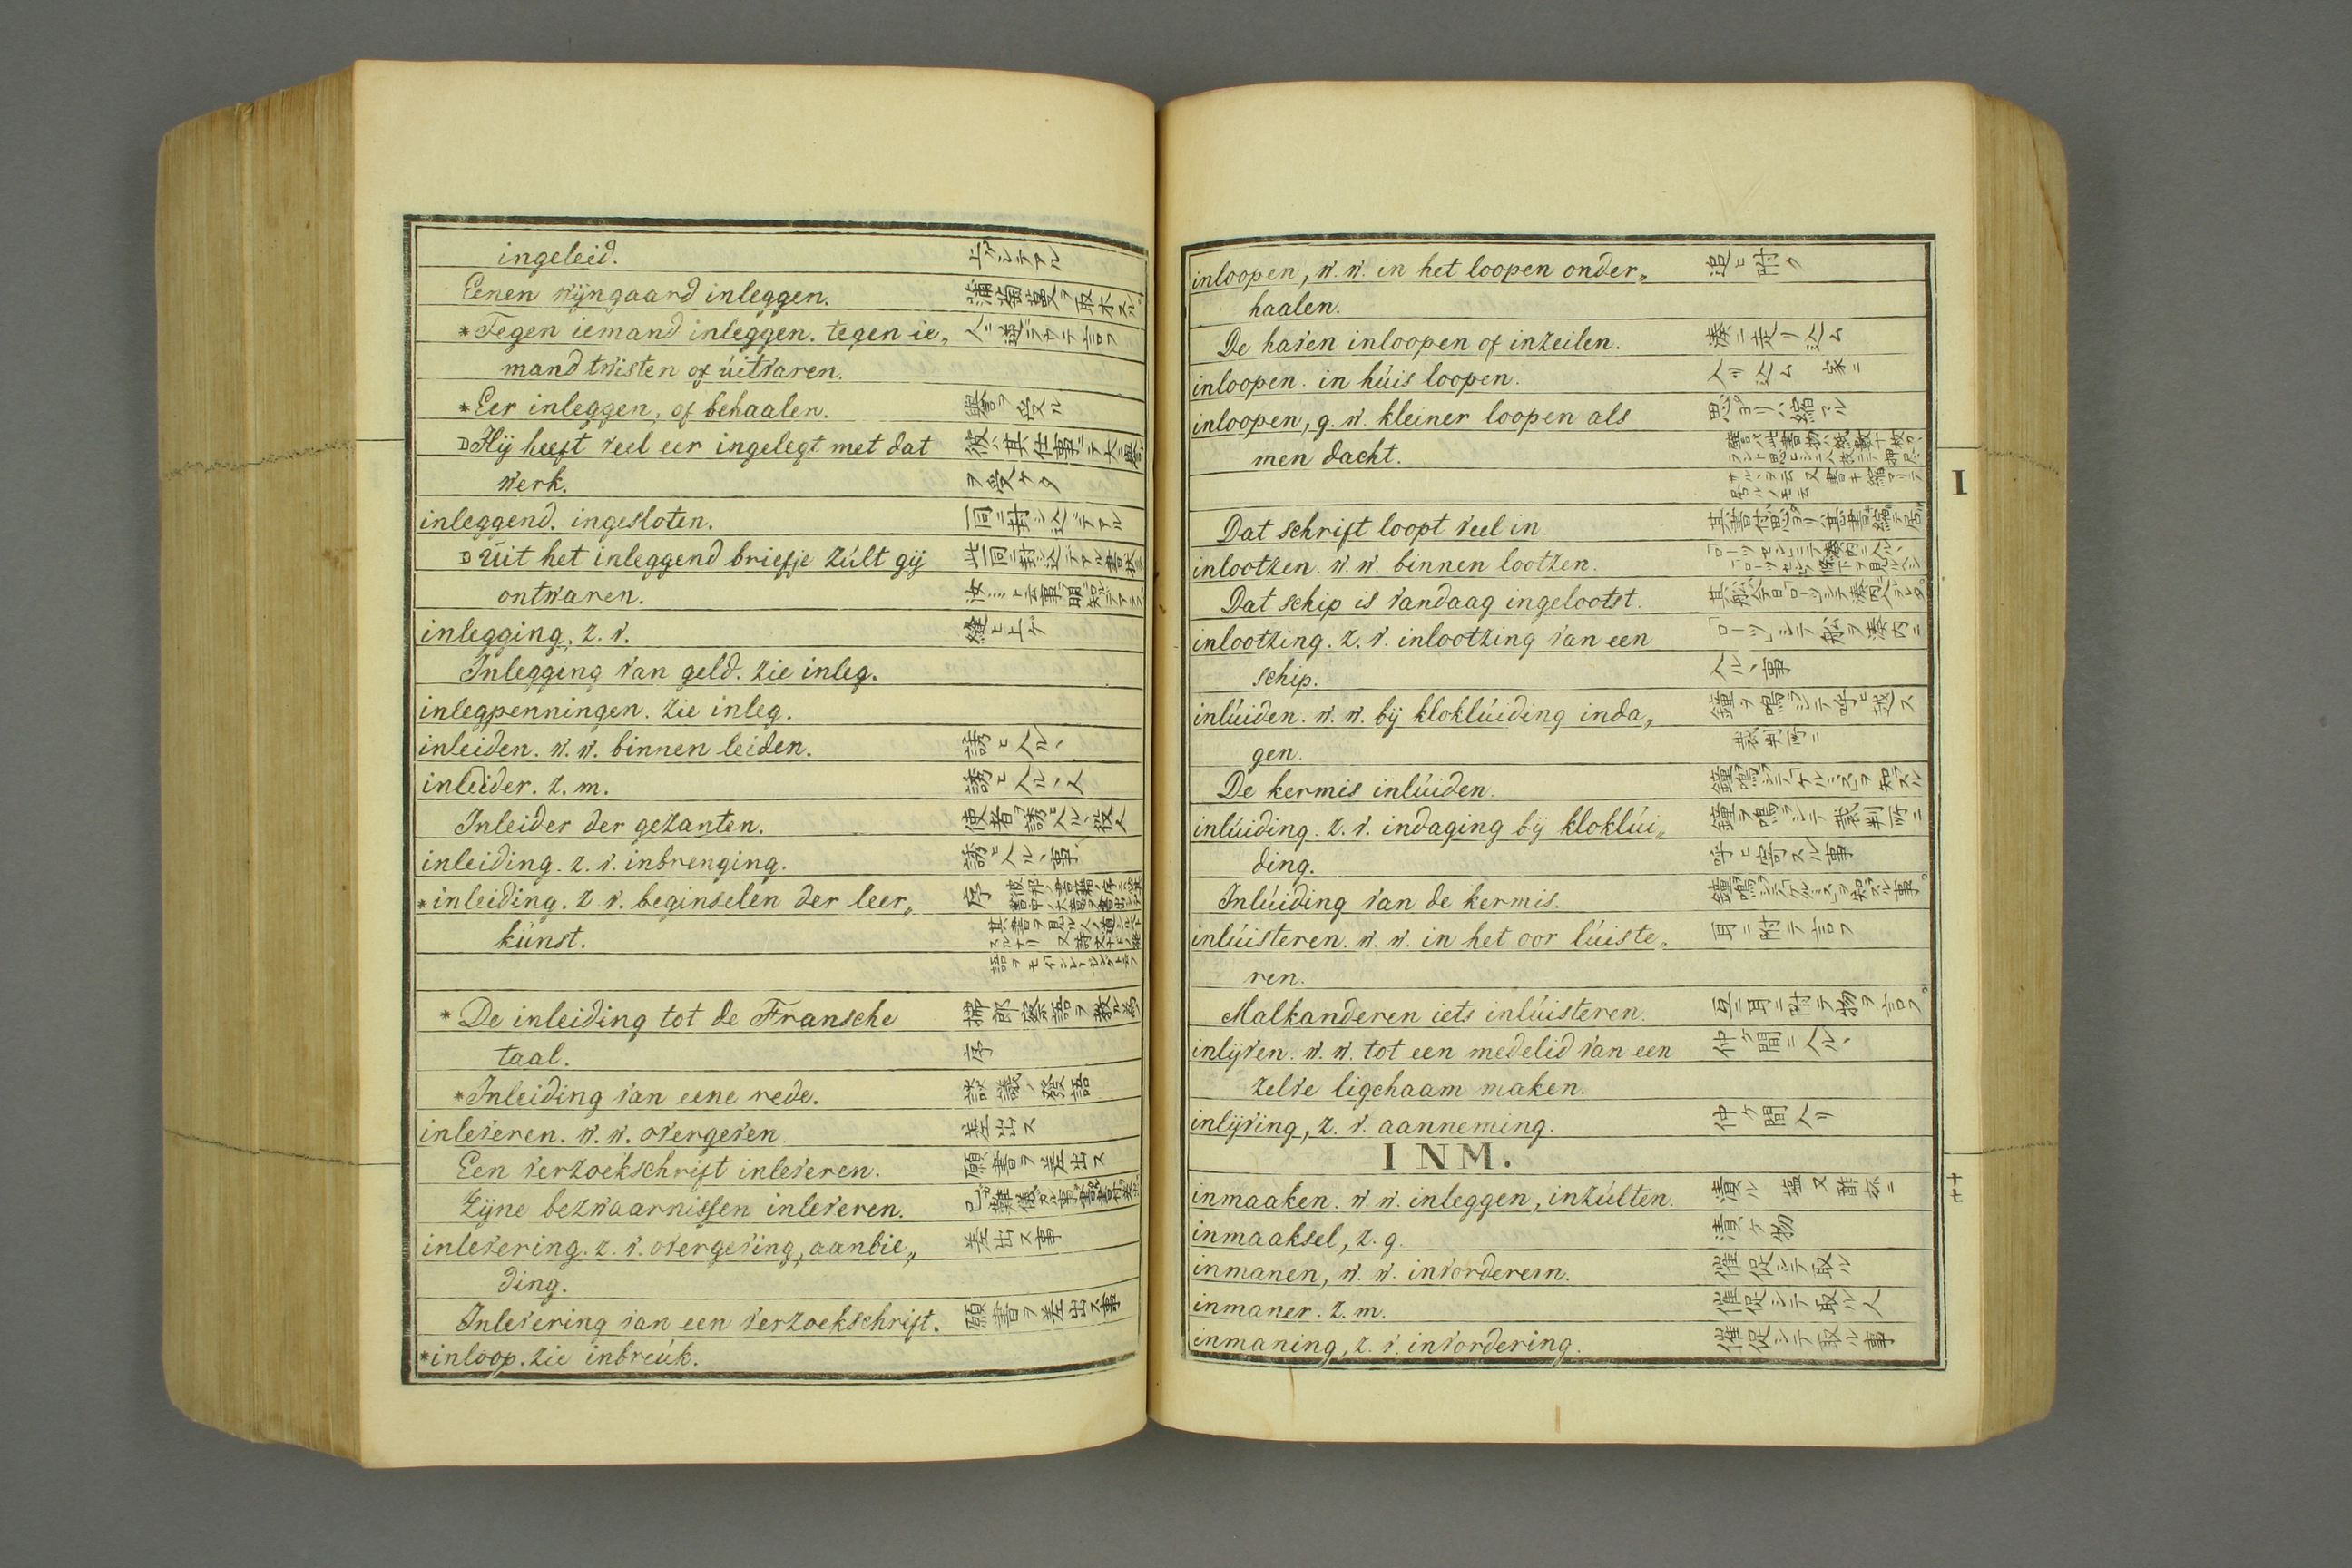 ingeleid. 上ゲシテアル
Eenen wijngaard inleggen. 蒲萄蔓ヲ取木スル
*Tegen iemand inleggen. tegen ie„ 人ニ逆ラフテ言フ
mand twisten of úitvaren.
*Eer inleggen, of behaalen. 譽ヲ受ル
DHij heeft veel eer ingelegt met dat 彼ハ其仕事ニテ大ニ譽
werk. ヲ受ケタ
inleggend. ingesloten. 一同ニ封シ込テアル
DÚit het inleggend briefje zúlt gij 此一同ニ封シ込テアル書状
ontwaren. 汝
inlegging, z. v. 縫ヒ上ゲ
Inlegging van geld. zie inleg.
inlegpenningen. zie inleg.
inleiden. w. w. binnen leiden. 誘ヒ入ルヽ
inleider. z. m. 誘ヒ入ルヽ人
Inleider der gezanten. 使者ヲ誘ヒ入ルヽ役人
inleiding. z. v. inbrenging. 誘ヒ入ルヽ事
*inleiding. z v. beginselen der leer„ 序
kúnst.
*De inleiding tot de Fransche 拂郎察語ヲ教ル為
taal. 序
*Inleiding van eene rede. 談議ノ發語
inleveren. w. w. overgeven. 差出ス
Een verzoekschrift inleveren. 願書ヲ差出ス
Zijne bezwaarnissen inleveren.
inlevering. z. v. overgeving, aanbie„ 差出ス事
ding.
Inlevering van een verzoekschrift. 願書ヲ差出ス事
*inloop. zie inbreúk.
inloopen, w. w. in het loopen onder„ 追ヒ附ク
haalen.
De haven inloopen of inzeilen. 湊ニ走リ込ム
inloopen. in húis loopen. 入リ込ム 家ニ
inloopen, g. w. kleiner loopen als 思ヨリハ縮マル
men dacht.
Dat schrift loopt veel in.
inlootzen. w. w. binnen lootzen.
Dat schip is vandaag ingelootst.
inlootzing. z. v. inlootzing van een 「ローツ」シテ船ヲ湊内ニ
schip. 入ルヽ事
inlúiden. w. w. bij kloklúiding inda„ 鐘ヲ鳴ラシテ呼ヒ越ス
gen. 裁判所ニ
De kermis inlúiden. 鐘鳴ラシテ「ケルミス」ヲ知ラスル
inlúiding. z. v. indaging bij kloklúi„ 鐘ヲ鳴ラシテ裁判所ニ
ding. 呼ヒ寄スル事
Inlúiding van de kermis. 鐘鳴ラシテ「ケルミス」ヲ知ラスル事
inlúisteren. w. w. in het oor lúiste„ 耳ニ附テ言フ
ren.
Malkanderen iets inlúisteren. 互ニ耳ニ附テ物ヲ言フ
inlijven. w. w. tot een medelid van een 仲ケ間ニ入ルヽ
zelve ligchaam maken.
inlijving, z. v. aanneming. 仲ケ間入リ
INM.
inmaaken. w w. inleggen, inzúlten. 漬ル 塩又酢抔ニ
inmaaksel, z. g. 漬ケ物
inmanen, w. w. invorderern. 催促シテ取ル
inmaner. z. m. 催促シテ取ル人
inmaning, z. v. invordering. 催促シテ取ル事
I
十七